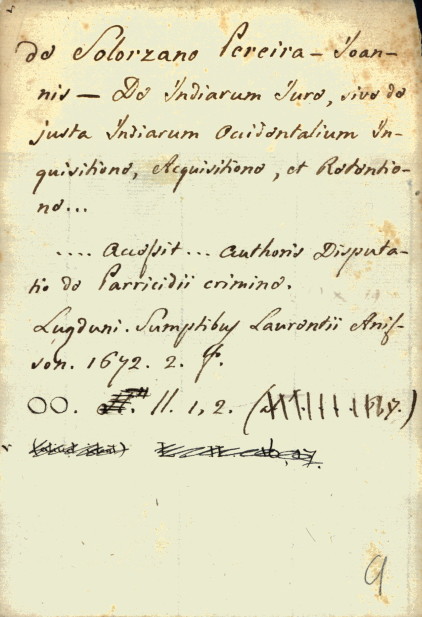 de Solorzano Pereira - Joan-
nis - De Indiarum Jure, sive de
justa Indiarum Occidentalium In-
quisitione, Acquisitione, et Retentio-
ne...
.... Accessit ... Authoris Disputa-
tio de Parricidii crimine.
Lugduni. Sumptibus Laurentii Anis-
son. 1672. 2. f.
OO. 11. 1, 2.
9